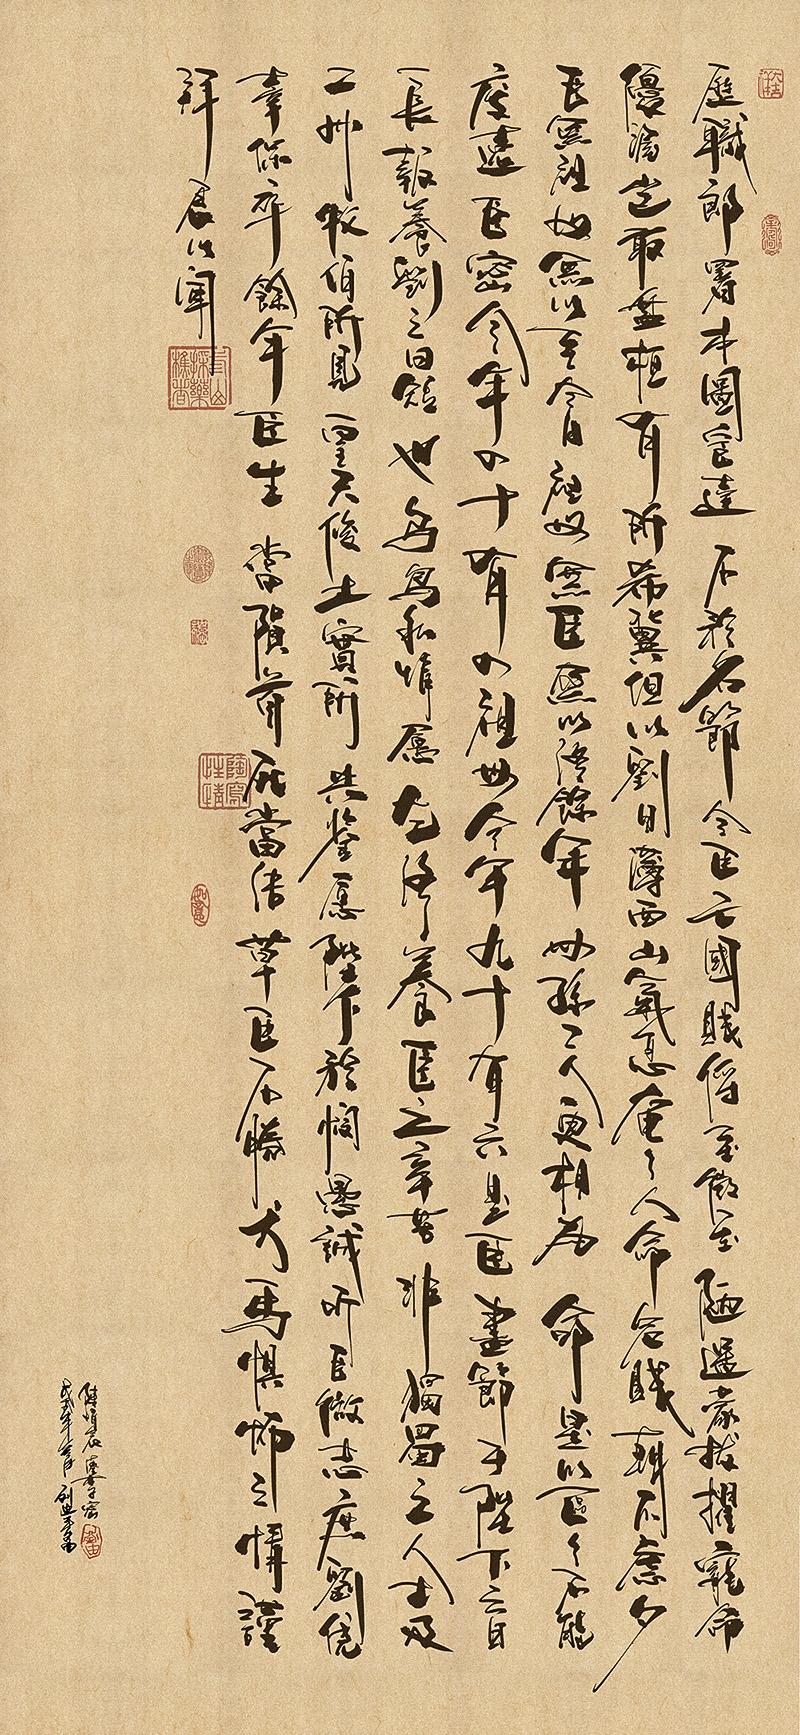 歷職郎署本圖宦達不矜名節今臣亡國賤俘至微至陋過蒙拔擢寵命
優渥豈敢盤桓有所希冀但以劉日薄西山氣息奄々人命危賤朝不慮夕
臣無祖母無以至今日祖母無臣無以終餘年母孫二人更相為命是以區々不能
廢遠臣密今年四十有四祖母今年九十有六是臣盡節于陛下之日
長報養劉之日短也烏鳥私情愿乞終養臣之辛苦非獨蜀之人士及
二州牧伯所見皇天後土實所共鑒愿陛下矜憫愚誠聽臣微志庶劉僥
幸保卒餘年臣生當隕首死當結草臣不勝犬馬懼怖之情謹
拜表以聞
陶寫性情
如意
陳情表 李密